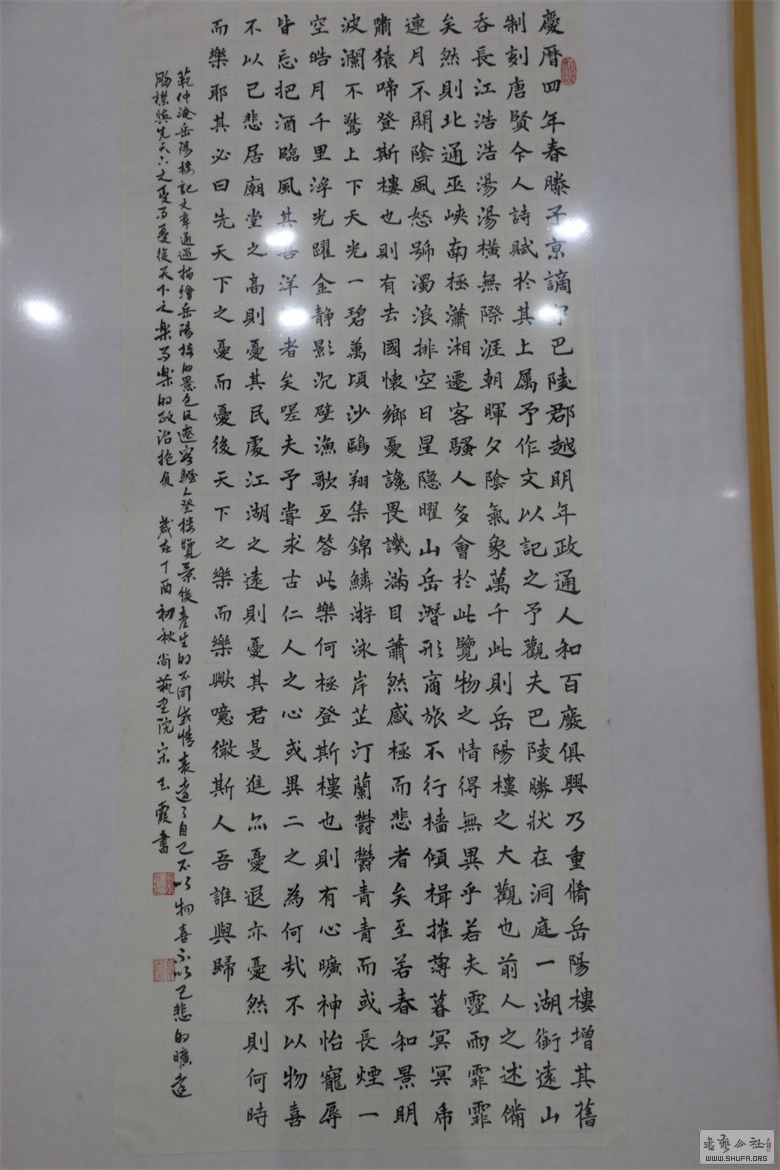 慶曆四年春滕子京謫守巴陵郡越明年政通人和百廢俱興乃重脩岳陽樓增其舊
制刻唐賢今人詩賦於其上属予作文以記之予觀夫巴陵勝狀在洞庭一湖銜遠山
吞長江浩浩湯湯橫無際涯朝暉夕陰氣象萬千此則岳陽樓之大觀也前人之述備
矣然則北通巫峽南極瀟湘遷客騷人多會於此覽物之情得無異乎若夫霪雨霏霏
連月不開陰風怒號濁浪排空日星隱曜山岳潛形商旅不行檣傾楫摧薄暮冥冥虎
嘯猿啼登斯樓也則有去國懷鄉憂讒畏譏滿目蕭然感極而悲者矣至若春和景明
波瀾不驚上下天光一碧萬頃沙鷗翔集錦鱗游泳岸芷汀蘭鬱鬱青青而或長煙一
空皓月千里浮光躍金静影沉璧漁歌互答此樂何極登斯樓也則有心曠神怡寵辱
皆忘把酒臨風其喜洋洋者矣嗟夫予嘗求古仁人之心或異二之為何哉不以物喜
不以己悲居廟堂之高則憂其民處江湖之遠則憂其君是進亦憂退亦憂然則何時
而樂耶其必曰先天下之憂而憂後天下之樂而樂歟噫微斯人吾誰與歸
範仲淹岳陽樓記文章通過描繪岳陽樓的景色及遷客騷人登樓覽景後產生的不同感情表達了自己不以物喜不以己悲的曠達
胸襟與先天下之憂而憂後天下之樂而樂的政治抱負 歲在丁酉初秋尚藝書院宋玉霞書
書藝公社
WWW.SHUFA.ORG